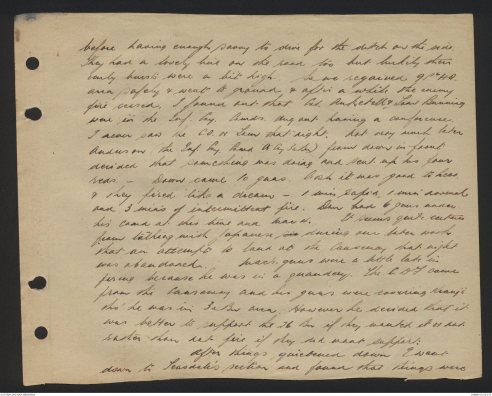 before having enough savvy to dive for the ditch on the side.
They had a lovely line on the road too but luckily their
early bursts were a bit high. So we regained 9 Pl HQ
area safely & went to ground & after a while the enemy
fire ceased. I found out that Ted &
were in the Inf. Bg. Comds. dug out having a conference.
I never saw the C.O. or that night. Not very much later
Anderson, the Inf. Bg. Comd from down in front
decided that something was doing and sent up his four
reds. – Down came the guns. Gosh it was good to hear
& they fired like a dream – 1 min rapid, 1 min normal
and 3 mins of intermittent fire. had 6 guns under
his comd at this time and It seems quite certain
from talking with Japanese, since our taken work
that an attempt to land at the Causeway that night
was abandoned. guns were a little late in
firing because he was in a quandary. The came
from the Causeway and his guns were covering
tho' he was in area, However he decided that it
was better to support the Bn if they wanted it or not
rather than not fire if they did want support.
After things quietened down I went
down to section and found that things were